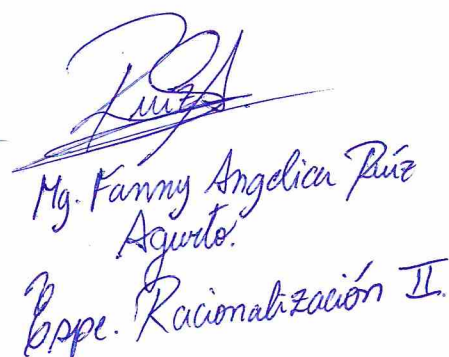 Ruiz A.
Mg. Fanny Angelica Ruíz
Agurto.
Espe. Racionalización II.